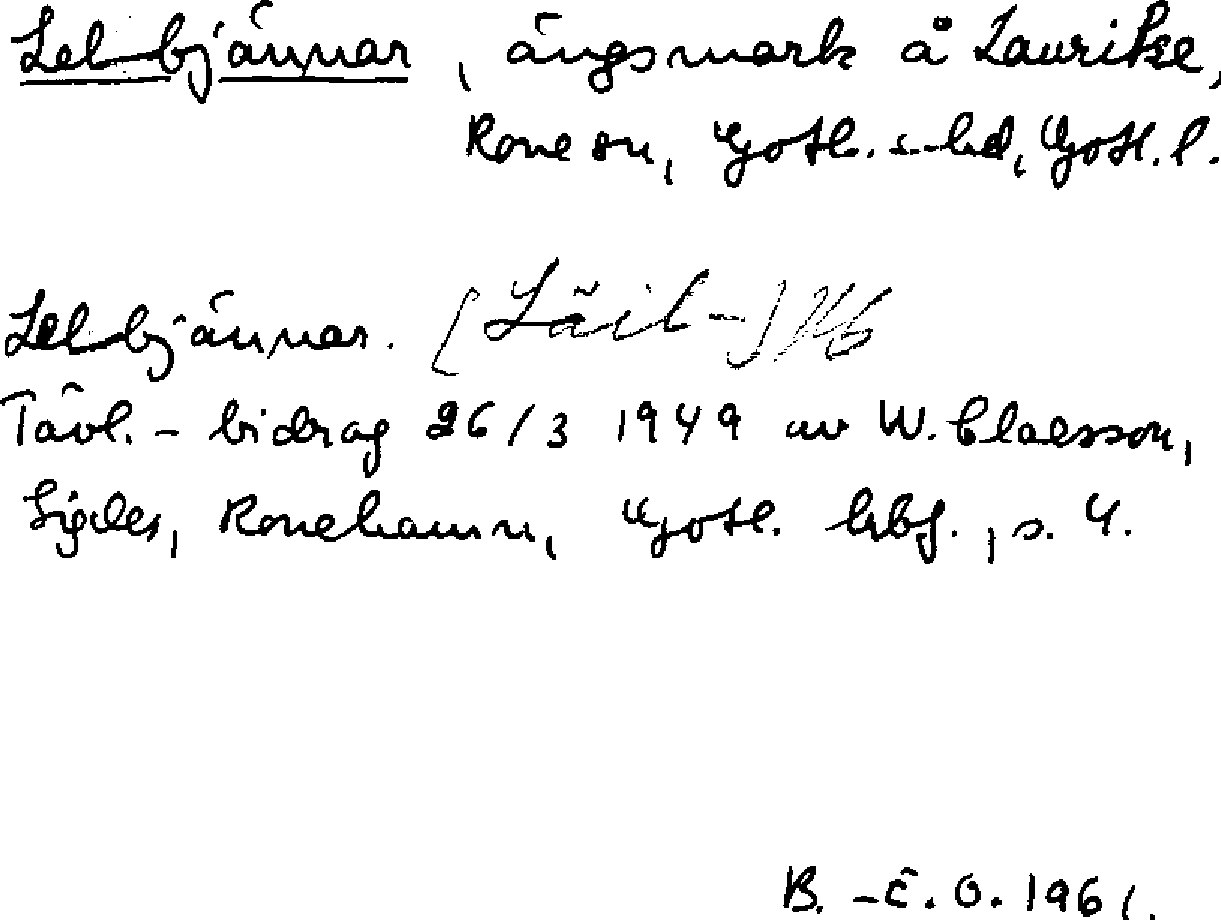 Lel bjännar, ängsmark å Laurikse,
Rone sn, Gotl. s. hd, Gotl. l.
Lel bjännar. [Läil-]
Tävl.-bidrag 26/3 1949 av W. Claesson,
Sigdes, Ronehamn, Gotl. hbf., s. 4.
B.-E. O. 1961.